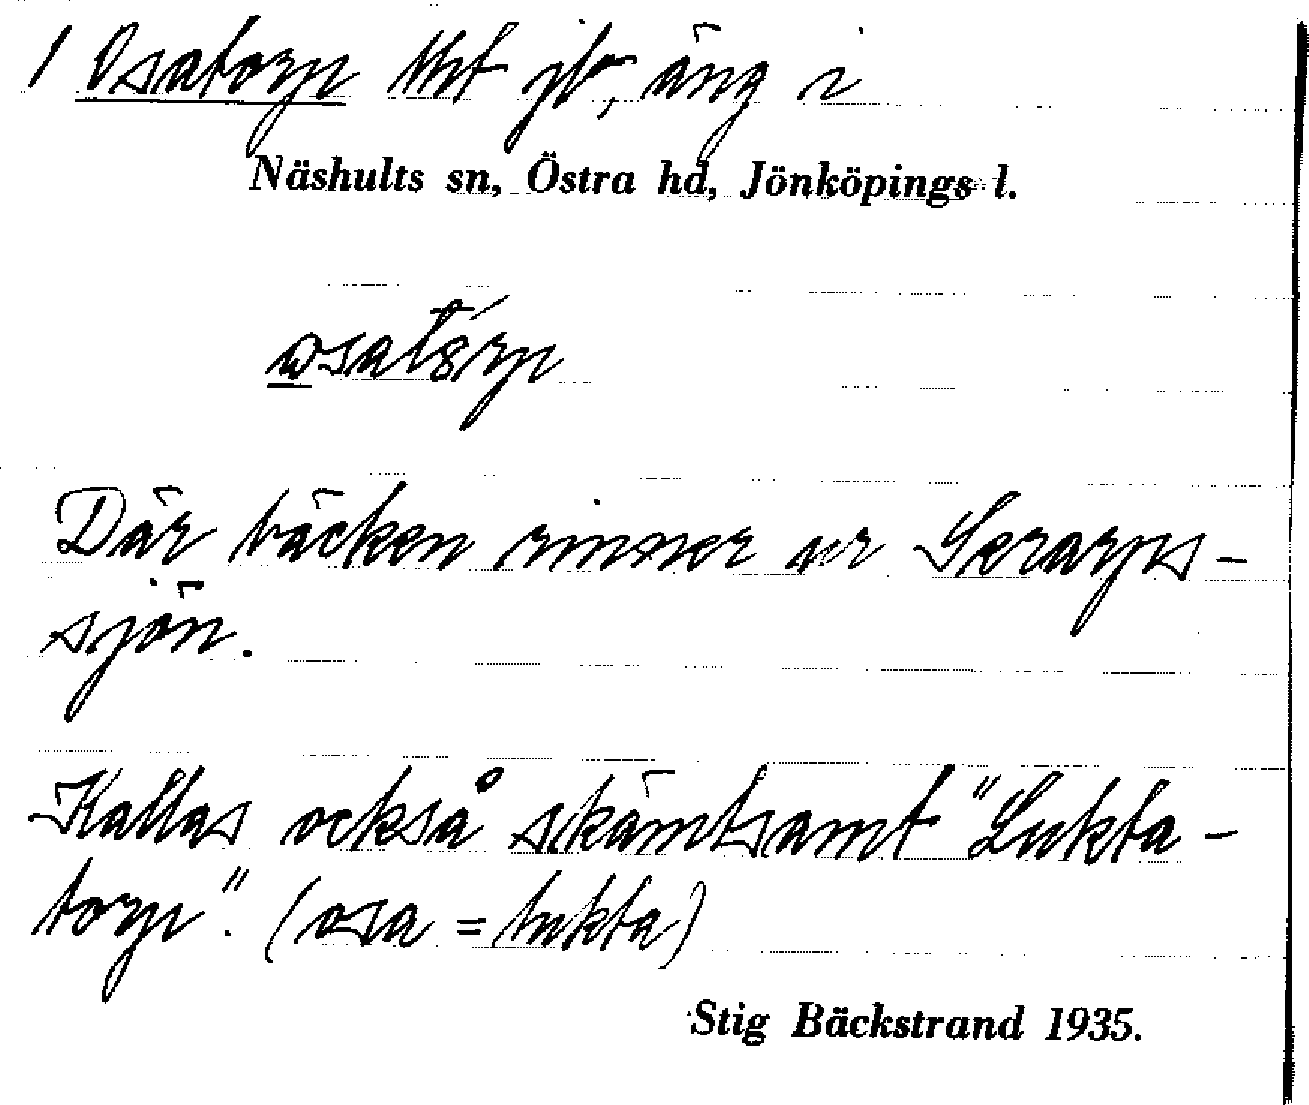 1 Osatorp tht jb, äng i
Näshults sn, Östra hd, Jönköpings l.
Där bäcken rinner ur Skrarps-
sjön.
Kallas också skämtsamt "Lukta-
torp". (osa = lukta)
Stig Bäckstrand 1935.